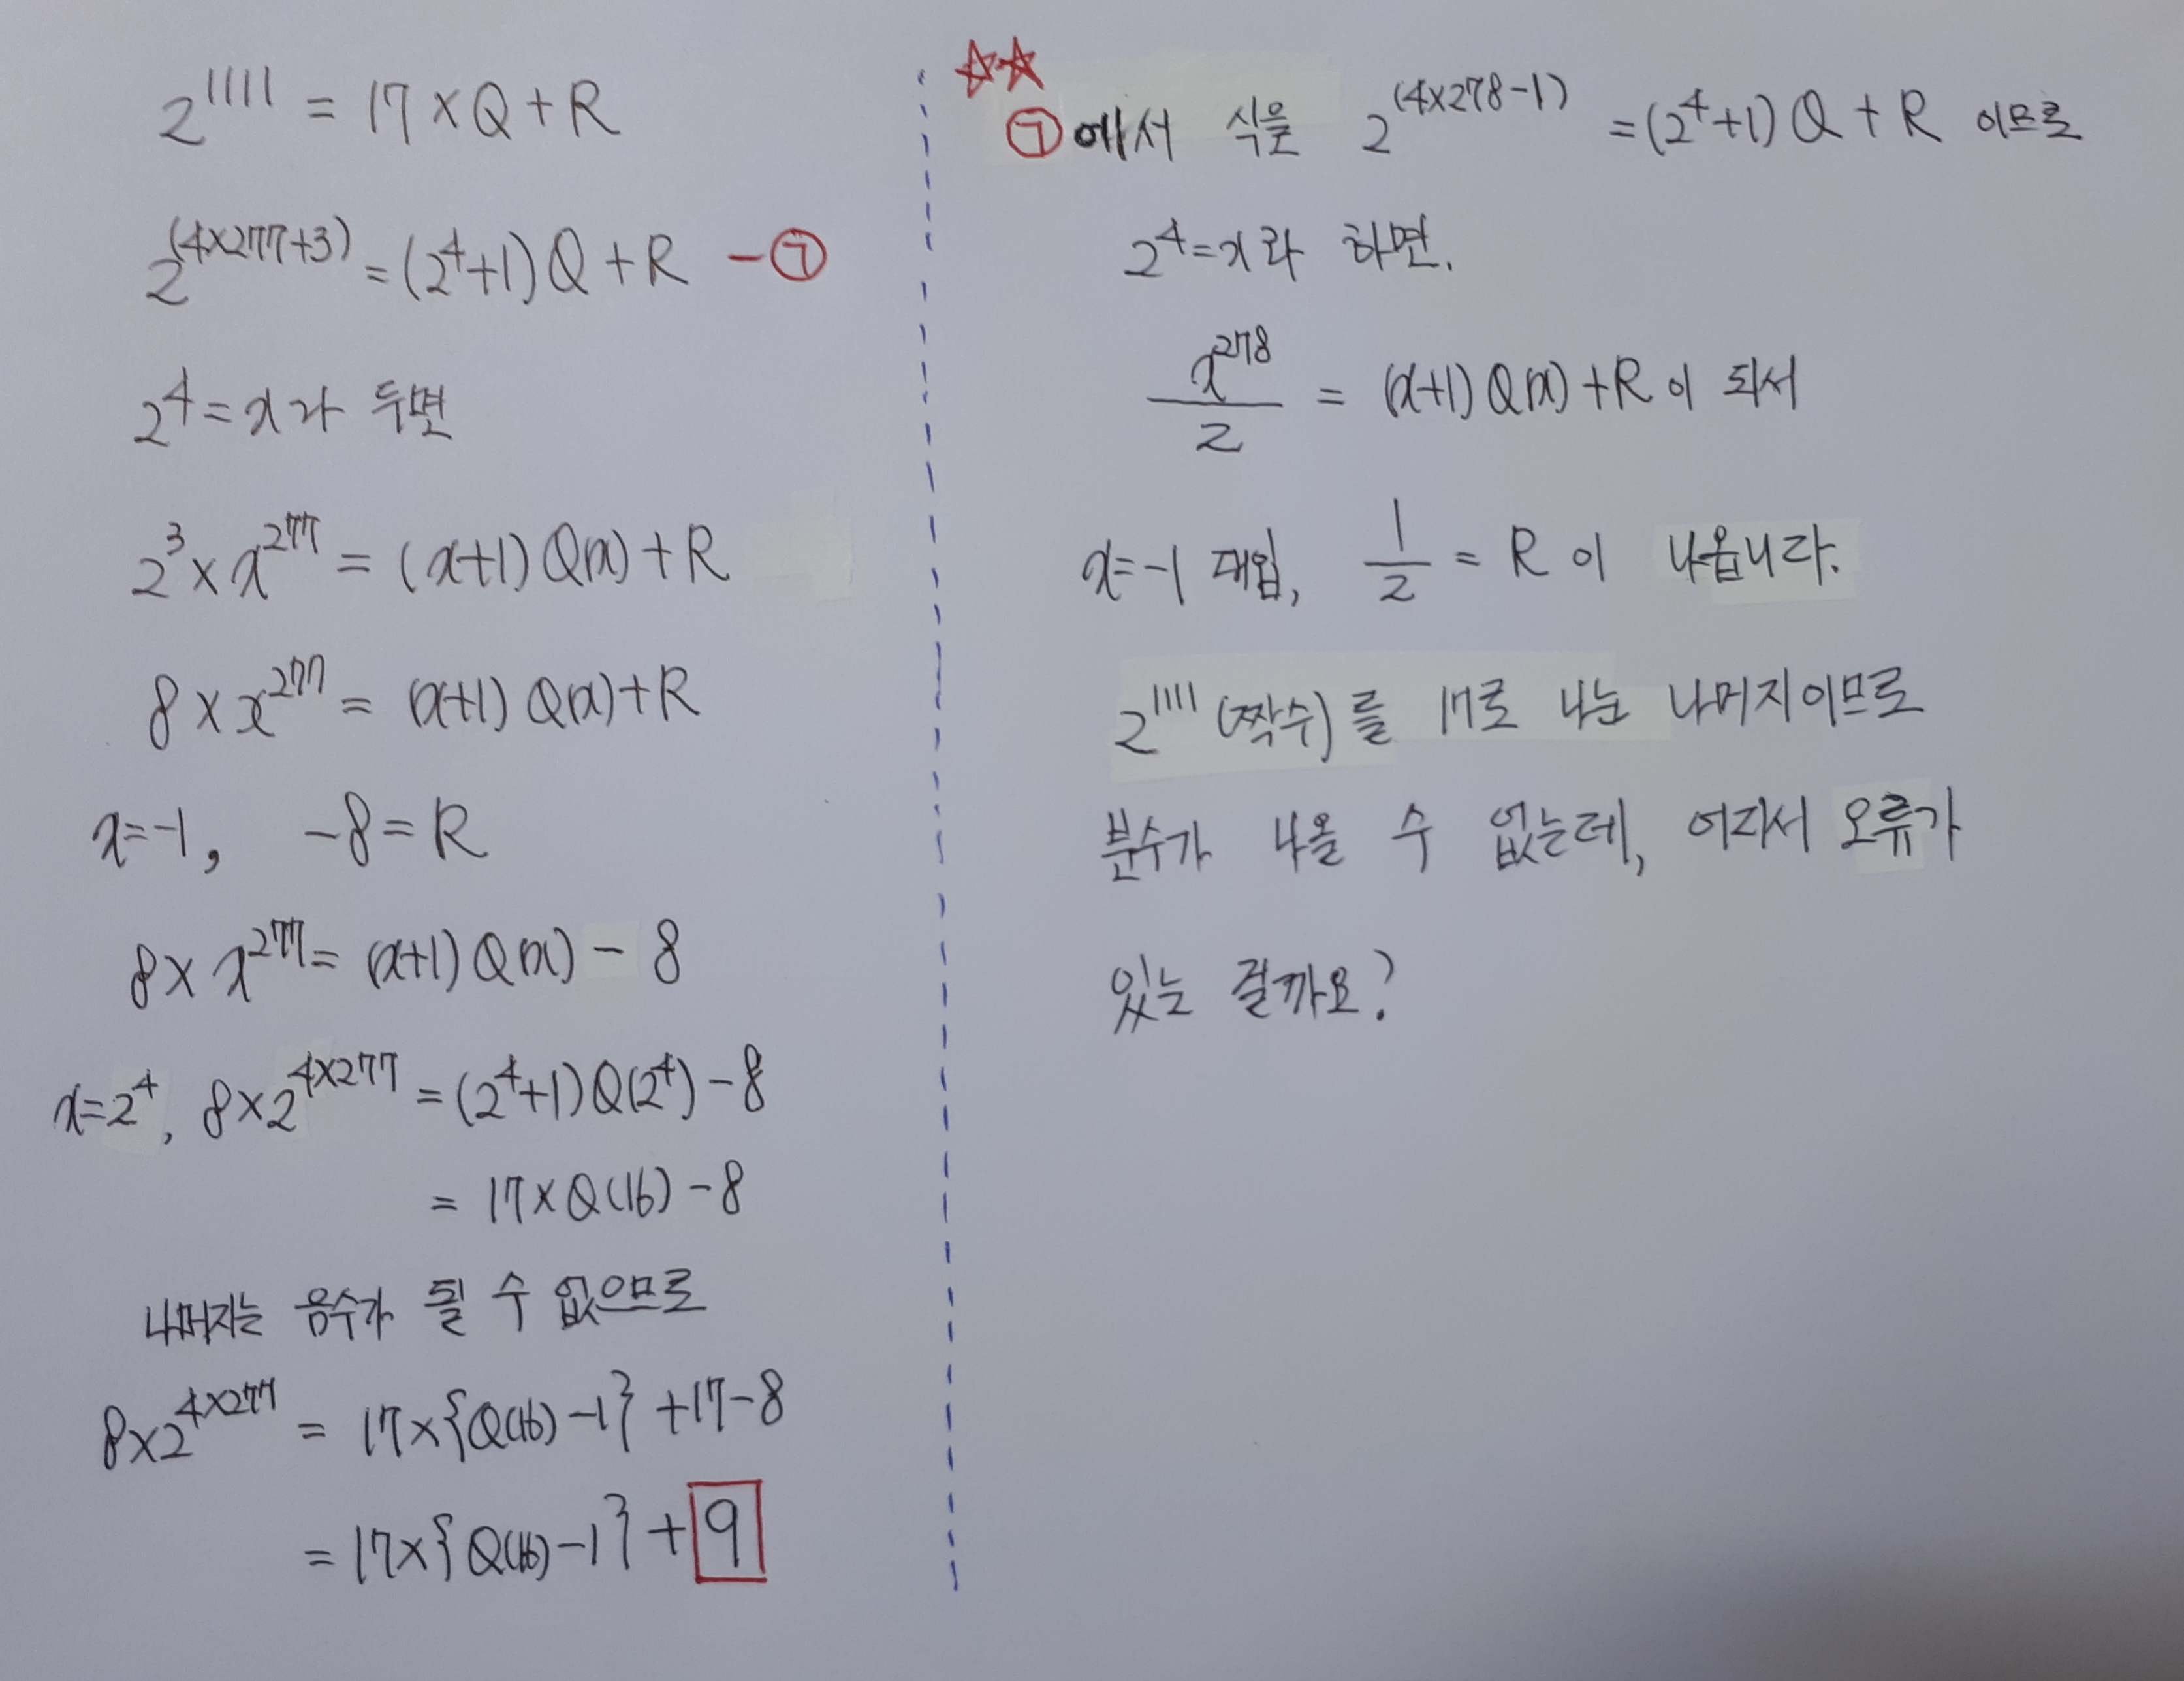 2^1111 = 17 × Q + R
2^(4×277+3) = (2^4+1) Q + R - ㉠
2^4 = x라 두면
2^3 × x^277 = (x+1) Q(x) + R
8 × x^277 = (x+1) Q(x) + R
x=-1, -8 = R
8 × x^277 = (x+1) Q(x) - 8
x=2^4, 8×2^4×277 = (2^4+1) Q(2^4) - 8
= 17 × Q(16) - 8
나머지는 음수가 될 수 없으므로
8×2^4×277 = 17×{Q(16)-1} + 17-8
= 17×{Q(16)-1} + 9
☆☆
㉠에서 식을 2^(4×278-1) = (2^4+1) Q + R 이므로
2^4=x라 하면.
x^278/2 = (x+1) Q(x) + R이 되서
x=-1 대입, 1/2 = R이 나옵니다.
2^1111(짝수)를 17로 나눈 나머지이므로
분수가 나올 수 없는데, 어디서 오류가
있는 걸까요?